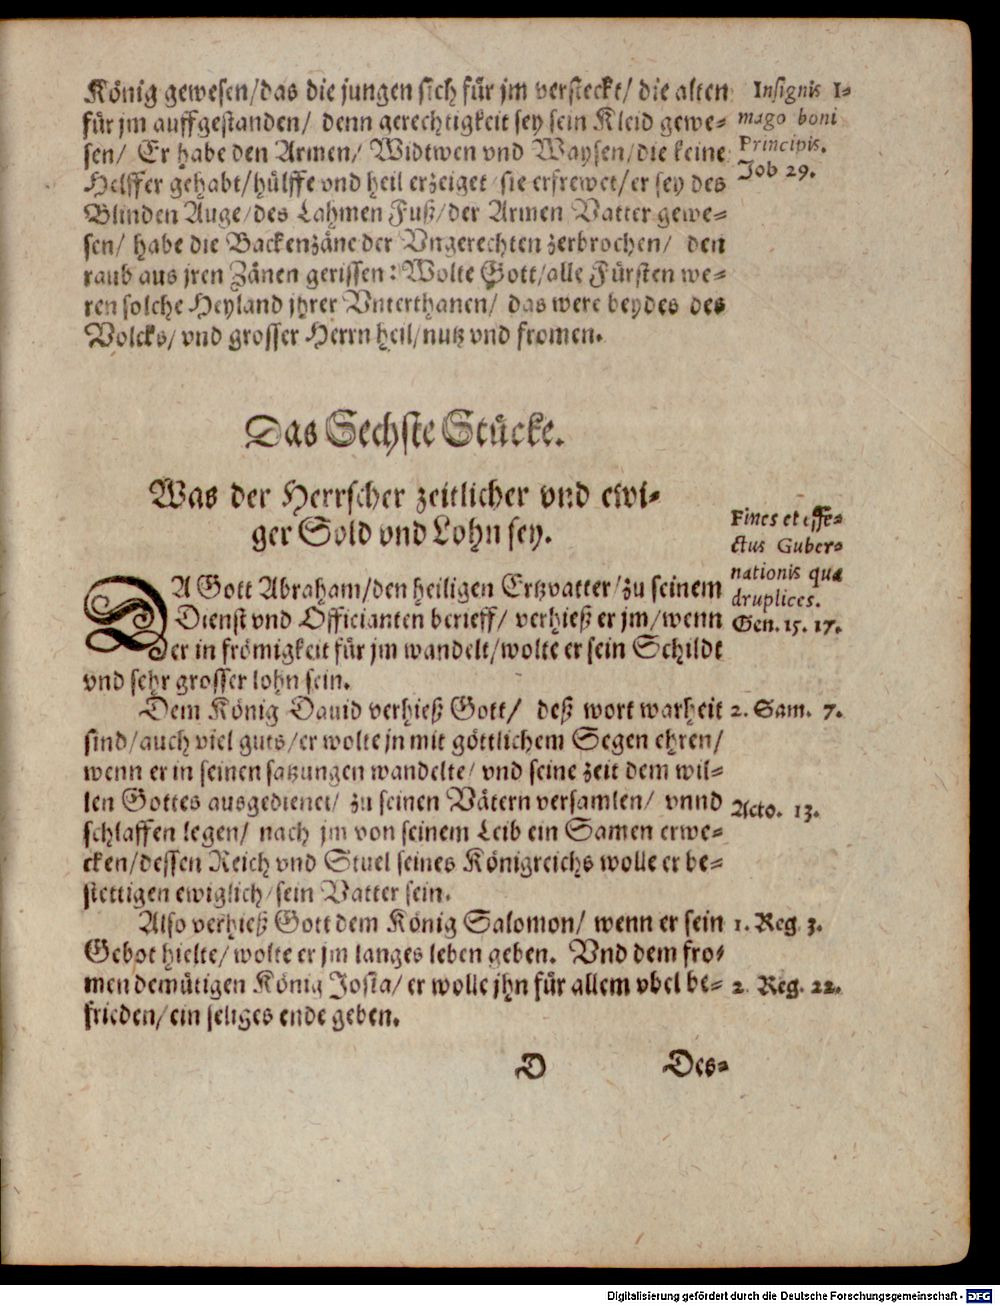 König gewesen/das die jungen sich für jm versteckt/ die alten
für jm auffgestanden/ denn gerechtigkeit sey sein Kleid gewe-
sen/ Er habe den Armen/ Widtwen vnd Waysen/die keine
Helffer gehabt/hülffe vnd heil erzeiget/sie erfrewet/er sey des
Blinden Auge/des Lahmen Fuß/der Armen Vatter gewe-
sen/ habe die Backenzäne der Vngerechten zerbrochen/ den
raub aus jren Zänen gerissen: Wolte Gott/alle Fürsten we-
ren solche Heyland jhrer Vnterthanen/ das were beydes des
Volcks/ vnd grosser Herrn heil/nutz vnd fromen.
Insignis I-
mago boni
Principis.
Job 29.
Das Sechste Stücke.
Was der Herrscher zeitlicher vnd ewi-
ger Sold vnd Lohn sey.
Fines et effe-
ctus Guber-
nationis qua
druplices.
Gen. 15. 17.
DA Gott Abraham/den heiligen Ertzvatter/zu seinem
Dienst vnd Officianten berieff/ verhieß er jm/wenn
er in frömigkeit für jm wandelt/wolte er sein Schildt
vnd sehr grosser lohn sein.
Dem König Dauid verhieß Gott/ deß wort warheit
2. Sam. 7.
sind/auch viel guts/er wolte jn mit göttlichem Segen ehren/
wenn er in seinen satzungen wandelte/ vnd seine zeit dem wil-
len Gottes ausgedienet/ zu seinen Vätern versamlen/ vnnd
Acto. 13.
schlaffen legen/ nach jm von seinem Leib ein Samen erwe-
cken/dessen Reich vnd Stuel seines Königreichs wolle er be-
stettigen ewiglich/sein Vatter sein.
Also verhieß Gott dem König Salomon/ wenn er sein
1. Reg. 3.
Gebot hielte/ wolte er jm langes leben geben. Vnd dem fro-
men demütigen König Josia/ er wolle jhn für allem vbel be-
2. Reg. 22.
frieden/ein seliges ende geben.
D
Des-
Digitalisierung gefördert durch die Deutsche Forschungsgemeinschaft - DFG